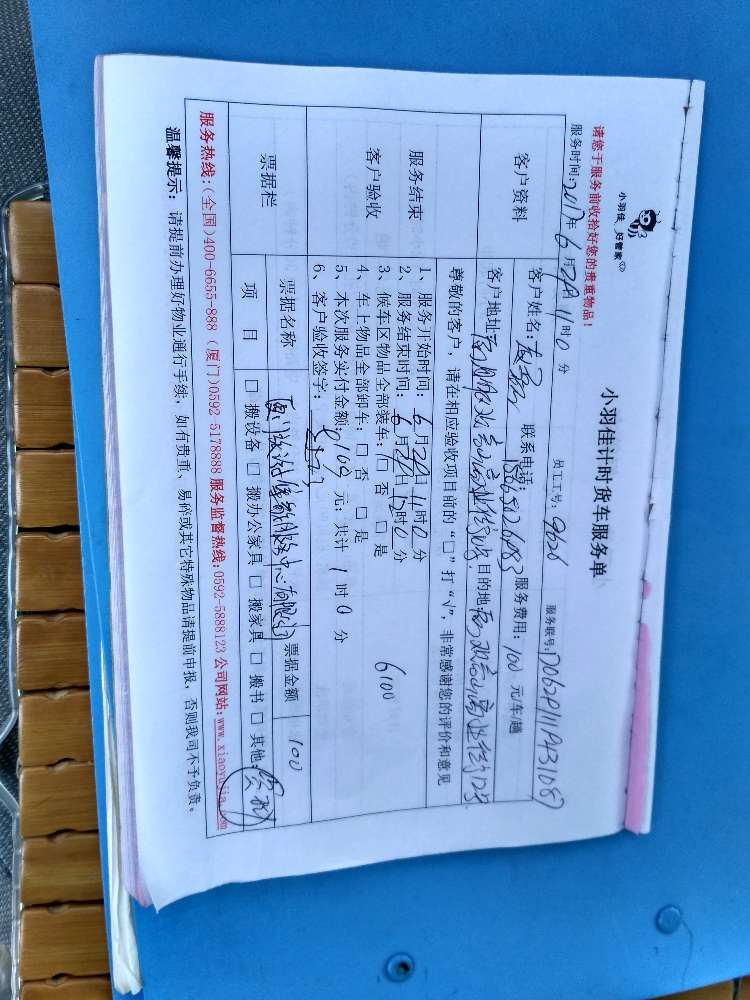 小羽佳 好管家
小羽佳计时货车服务单
请您于服务前收拾好您的贵重物品！
服务时间：2017年 6 月29日 11 时 0 分 员工工号：9626 服务联号：
客户资料
客户姓名： 联系电话： 服务费用：100 元/车/趟
客户地址： 目的地：
尊敬的客户，请在相应验收项目前的“□”打“√”，非常感谢您的评价和意见
服务结束
客户验收
1、服务开始时间： 6 月29日 11 时 0 分
2、服务结束时间： 6 月29日 12 时 0 分
3、候车区物品全部装车：□ 否 □ 是
4、车上物品全部卸车：□ 否 □ 是
5、本次服务实付金额： 100 元；共计 1 时 0 分
6、客户验收签字：
6100
票据栏
票据名称 票据金额 100
项 目 □ 搬设备 □ 搬办公家具 □ 搬家具 □ 搬书 □ 其他：
服务热线：(全国)400-6655-888 (厦门)0592-5178888 服务监督热线：0592-5888123 公司网站：www.xiaoyujia.com
温馨提示：请提前办理好物业通行手续，如有贵重、易碎或其它特殊物品请提前申报，否则我司不予负责。